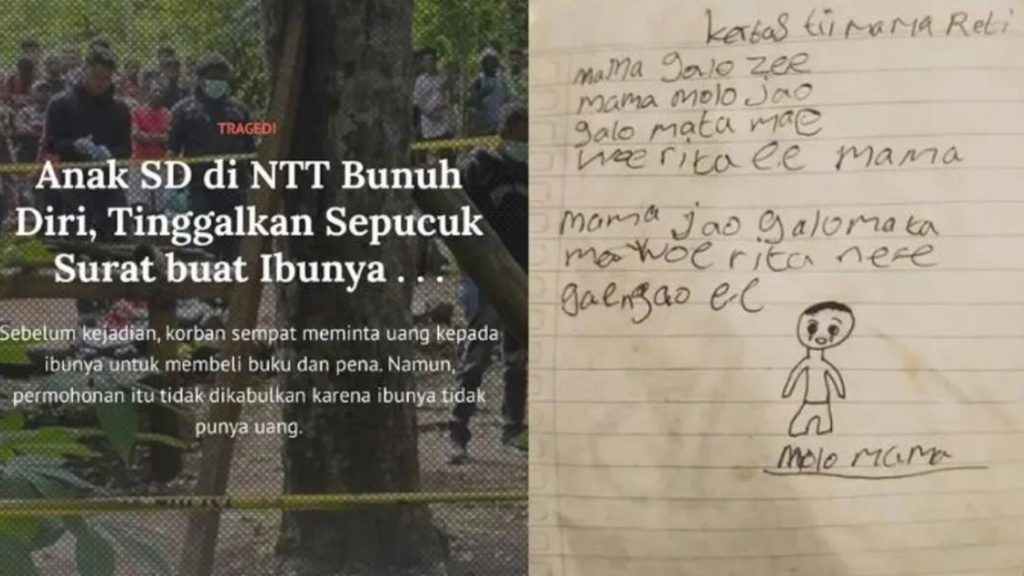 TRAGEDI
Anak SD di NTT Bunuh
Diri, Tinggalkan Sepucuk
Surat buat Ibunya . . .
Sebelum kejadian, korban sempat meminta uang kepada
ibunya untuk membeli buku dan pena. Namun,
permohonan itu tidak dikabulkan karena ibunya tidak
punya uang.
kertas tii mama Reti
mama galo zee
mama molo jao
galo mata mae
woe rita ee mama
mama jao galo mata
mae woe rita ne'e
gae ngao ee
molo mama